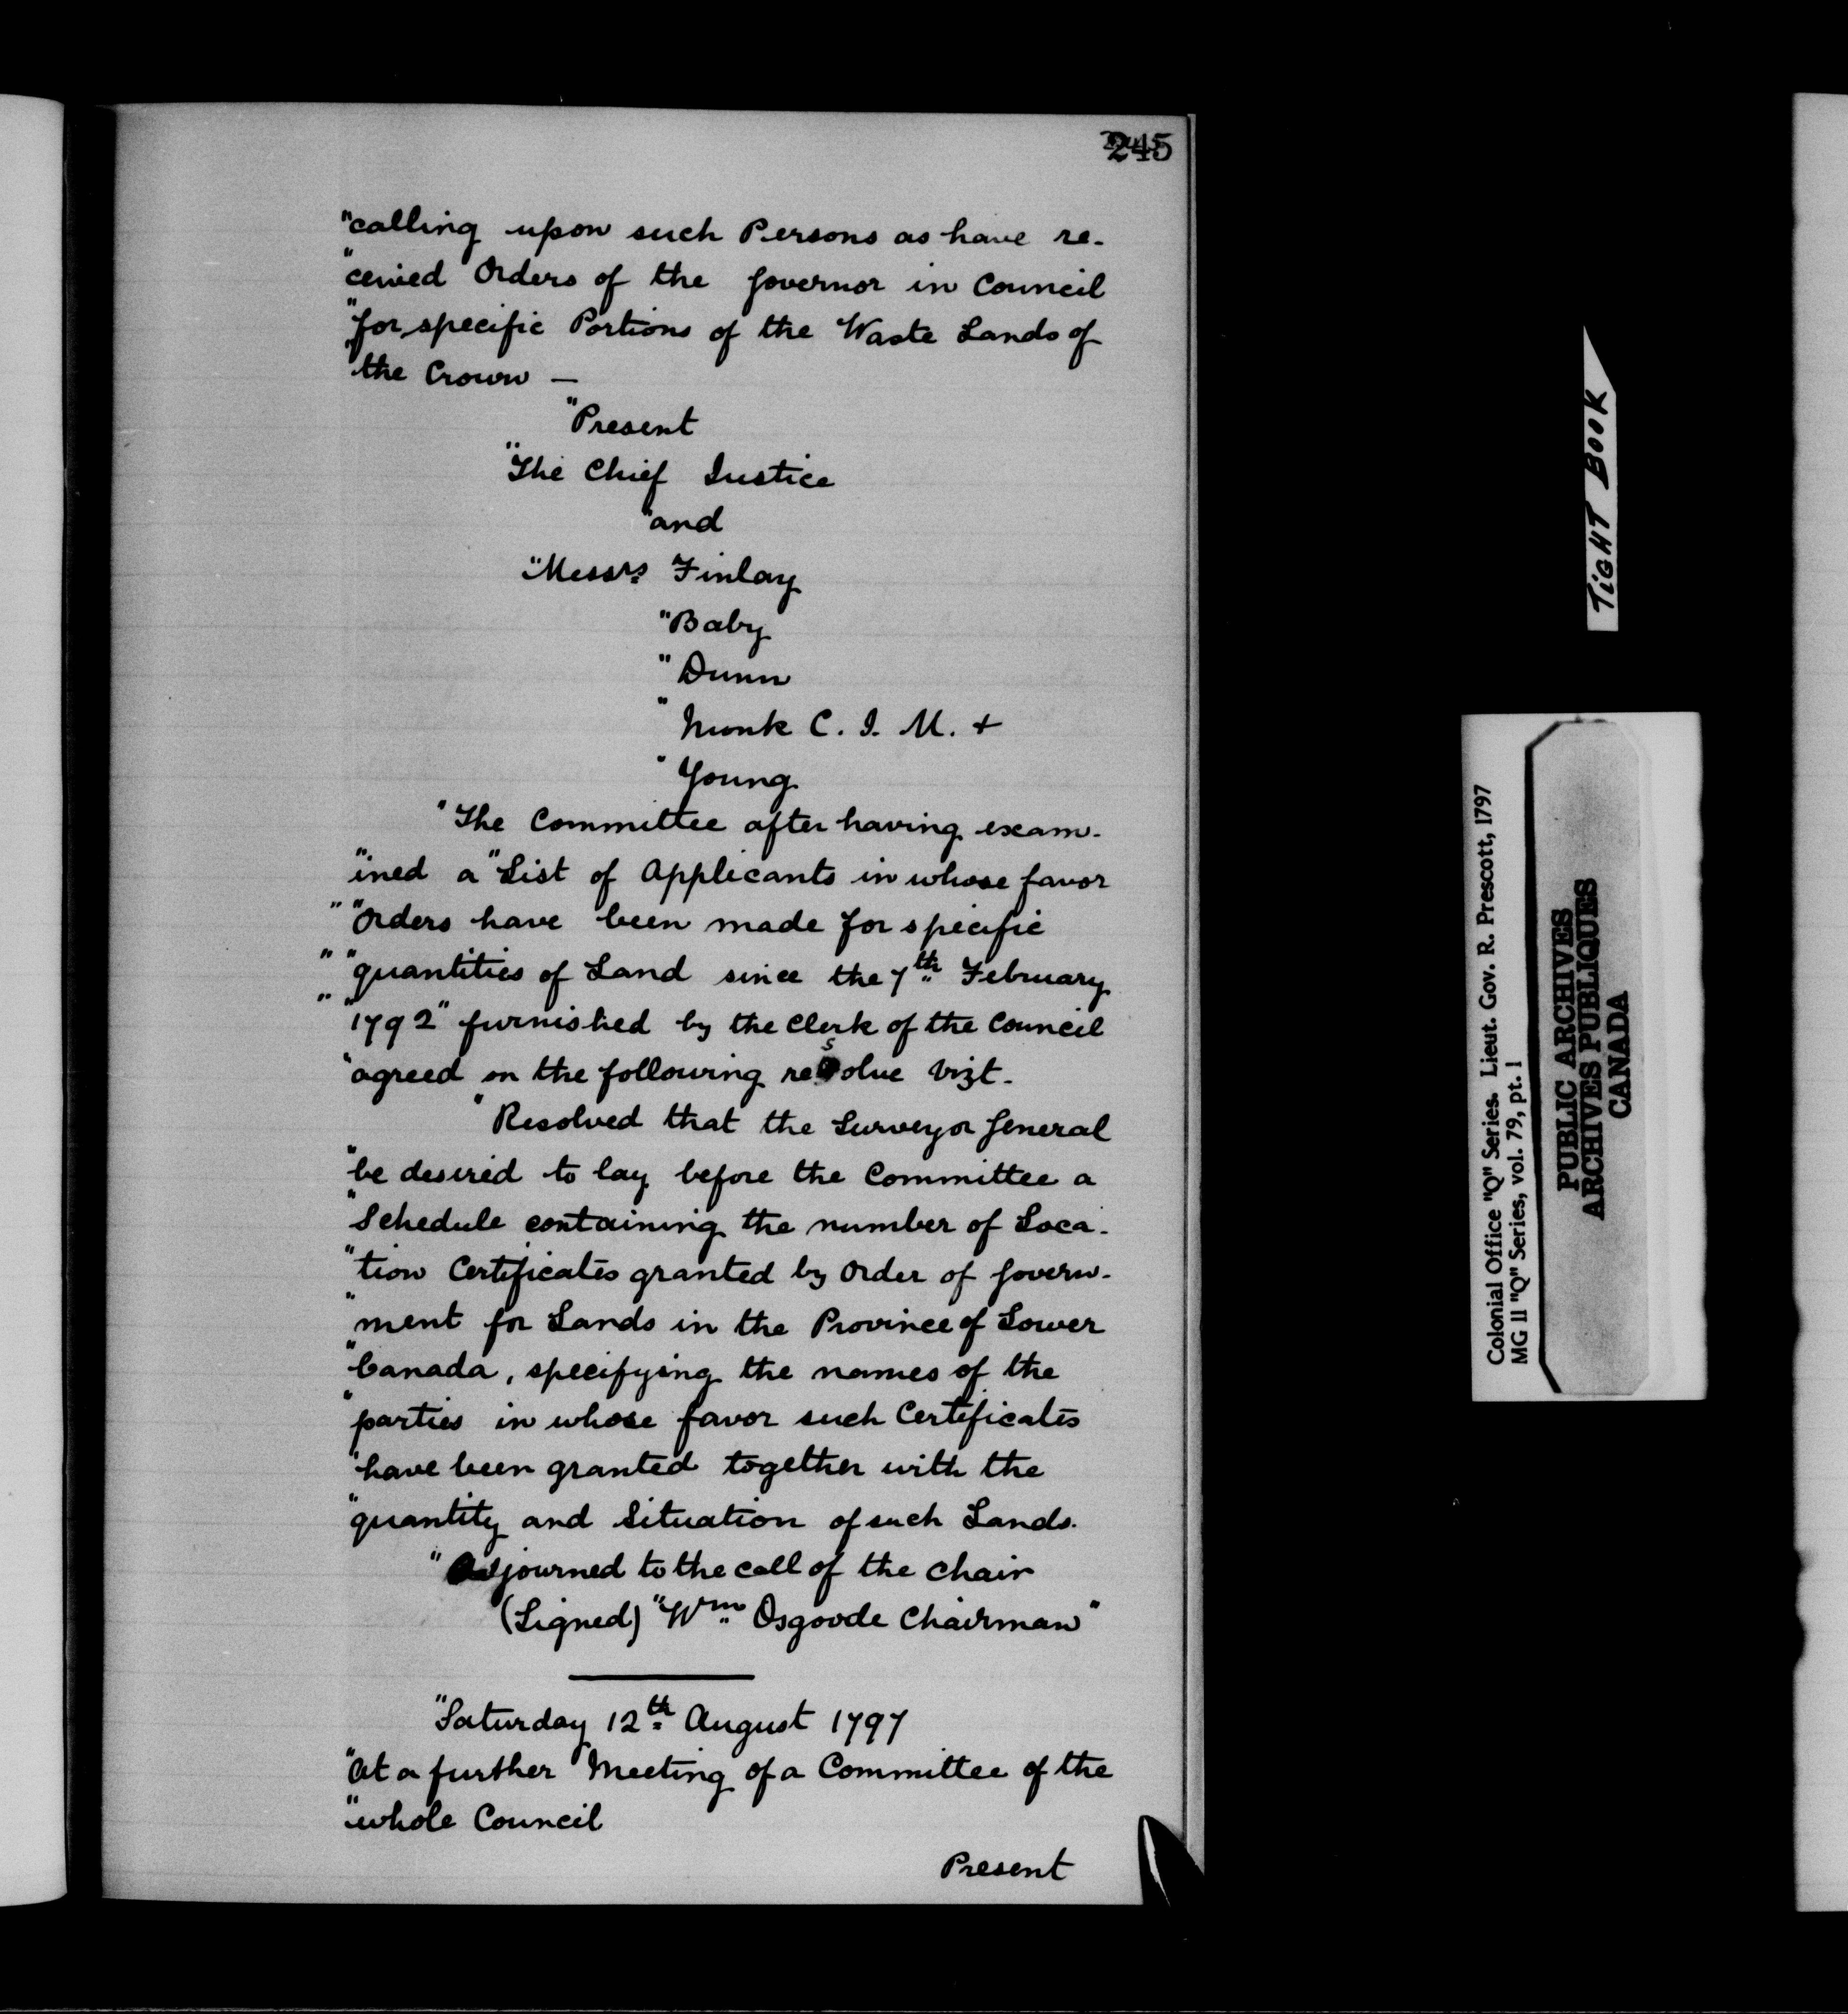 245
"calling upon such Persons as have re-
"ceived Orders of the Governor in Council
"for specific Portions of the Waste Lands of
"the Crown —
"Present
"The Chief Justice
"and
"Messrs Finlay
"Baby
"Dunn
"Monk C. J. M. +
"Young
"The Committee after having exam-
"ined a "List of Applicants in whose favor
" "Orders have been made for specific
" "quantities of Land since the 7th February
" "1792" furnished by the Clerk of the Council
"agreed on the following resolve Vizt.
"Resolved that the Surveyor General
"be desired to lay before the Committee a
"Schedule containing the number of Loca-
"tion Certificates granted by Order of Govern-
"ment for Lands in the Province of Lower
"Canada, specifying the names of the
"parties in whose favor such Certificates
"have been granted together with the
"quantity and Situation of such Lands.
"Adjourned to the call of the chair
(Signed) "Wm Osgoode Chairman"
"Saturday 12th August 1797
"At a further Meeting of a Committee of the
"whole Council
Present
TIGHT BOOK
Colonial Office "Q" Series. Lieut. Gov. R. Prescott, 1797
MG 11 "Q" Series, vol. 79, pt. 1
PUBLIC ARCHIVES
ARCHIVES PUBLIQUES
CANADA